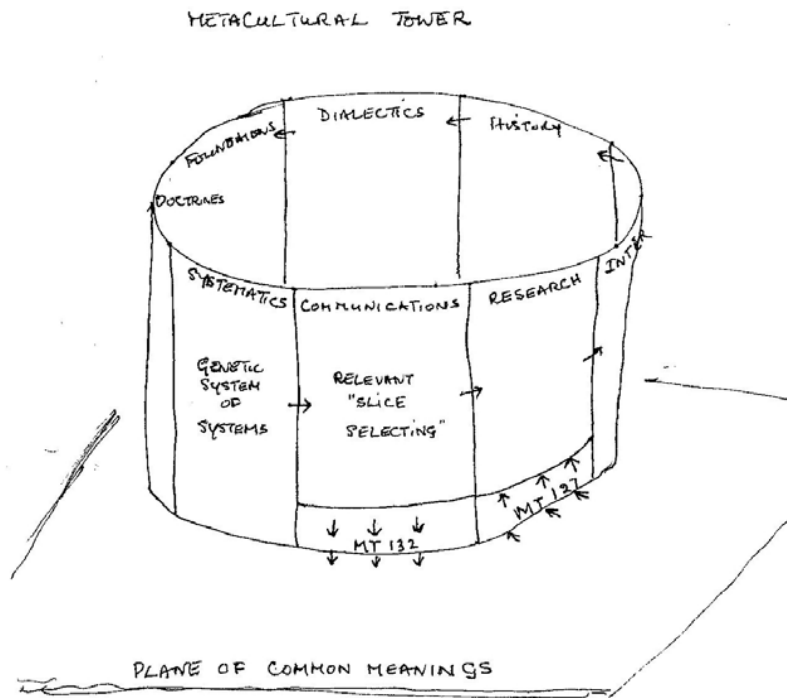 METACULTURAL TOWER
DIALECTICS
HISTORY
FOUNDATIONS
DOCTRINES
INTER
SYSTEMATICS
COMMUNICATIONS
RESEARCH
GENETIC
SYSTEM
OF
SYSTEMS
RELEVANT
"SLICE
SELECTING"
MT 127
MT 132
PLANE OF COMMON MEANINGS